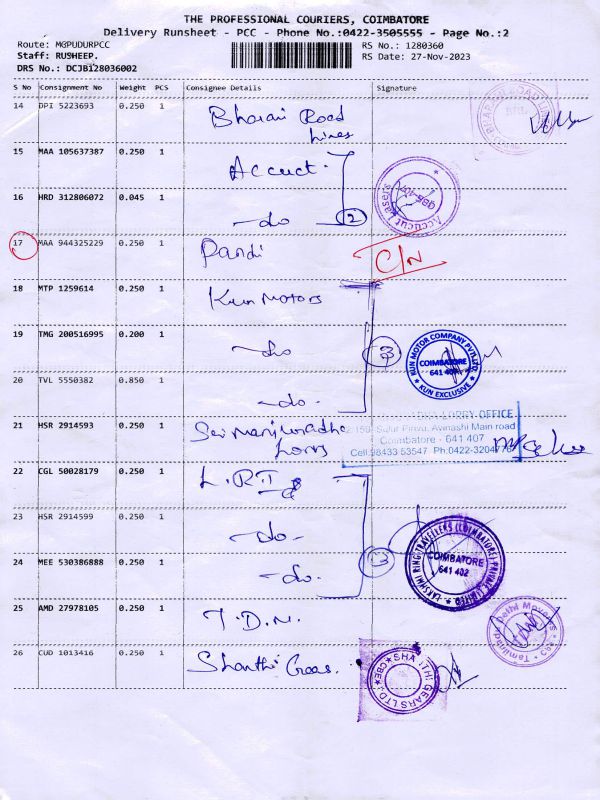 THE PROFESSIONAL COURIERS, COIMBATORE
Delivery Runsheet - PCC - Phone No.:0422-3505555 - Page No.:2
Route: MGPUDURPCC RS No.: 1280360
Staff: RUSHEEP. RS Date: 27-Nov-2023
DRS No.: DCJBI28036002
S No Consignment No Weight PCS Consignee Details Signature
14 DPI 5223693 0.250 1 Bharat Road
Lines
15 MAA 105637387 0.250 1 Accuct.
Accucut Lasers
16 HRD 312806072 0.045 1 do 2
17 MAA 944325229 0.250 1 Pandi C/N
18 MTP 1259614 0.250 1 Kun Motors
19 TMG 200516995 0.200 1 do 3
KUN MOTOR COMPANY PVT LTD
COIMBATORE
641 407
KUN EXCLUSIVE
20 TVL 5550382 0.850 1 do.
LORRY OFFICE
21 HSR 2914593 0.250 1 Sri Manjunadha
Lorry
Avinashi Main road
Coimbatore - 641 407
Cell:98433 53547 Ph:0422-3204776
22 CGL 50028179 0.250 1 L.R.T
23 HSR 2914599 0.250 1 do.
24 MEE 530386888 0.250 1 do. 3
LAKSHMI RING TRAVELLERS (COIMBATORE) PRIVATE LIMITED
COIMBATORE
641 402
25 AMD 27978105 0.250 1 T.D.M.
Tamilnadu Delhi Movers
26 CUD 1013416 0.250 1 Shanthi Gears.
SHANTHI GEARS LTD
CBE